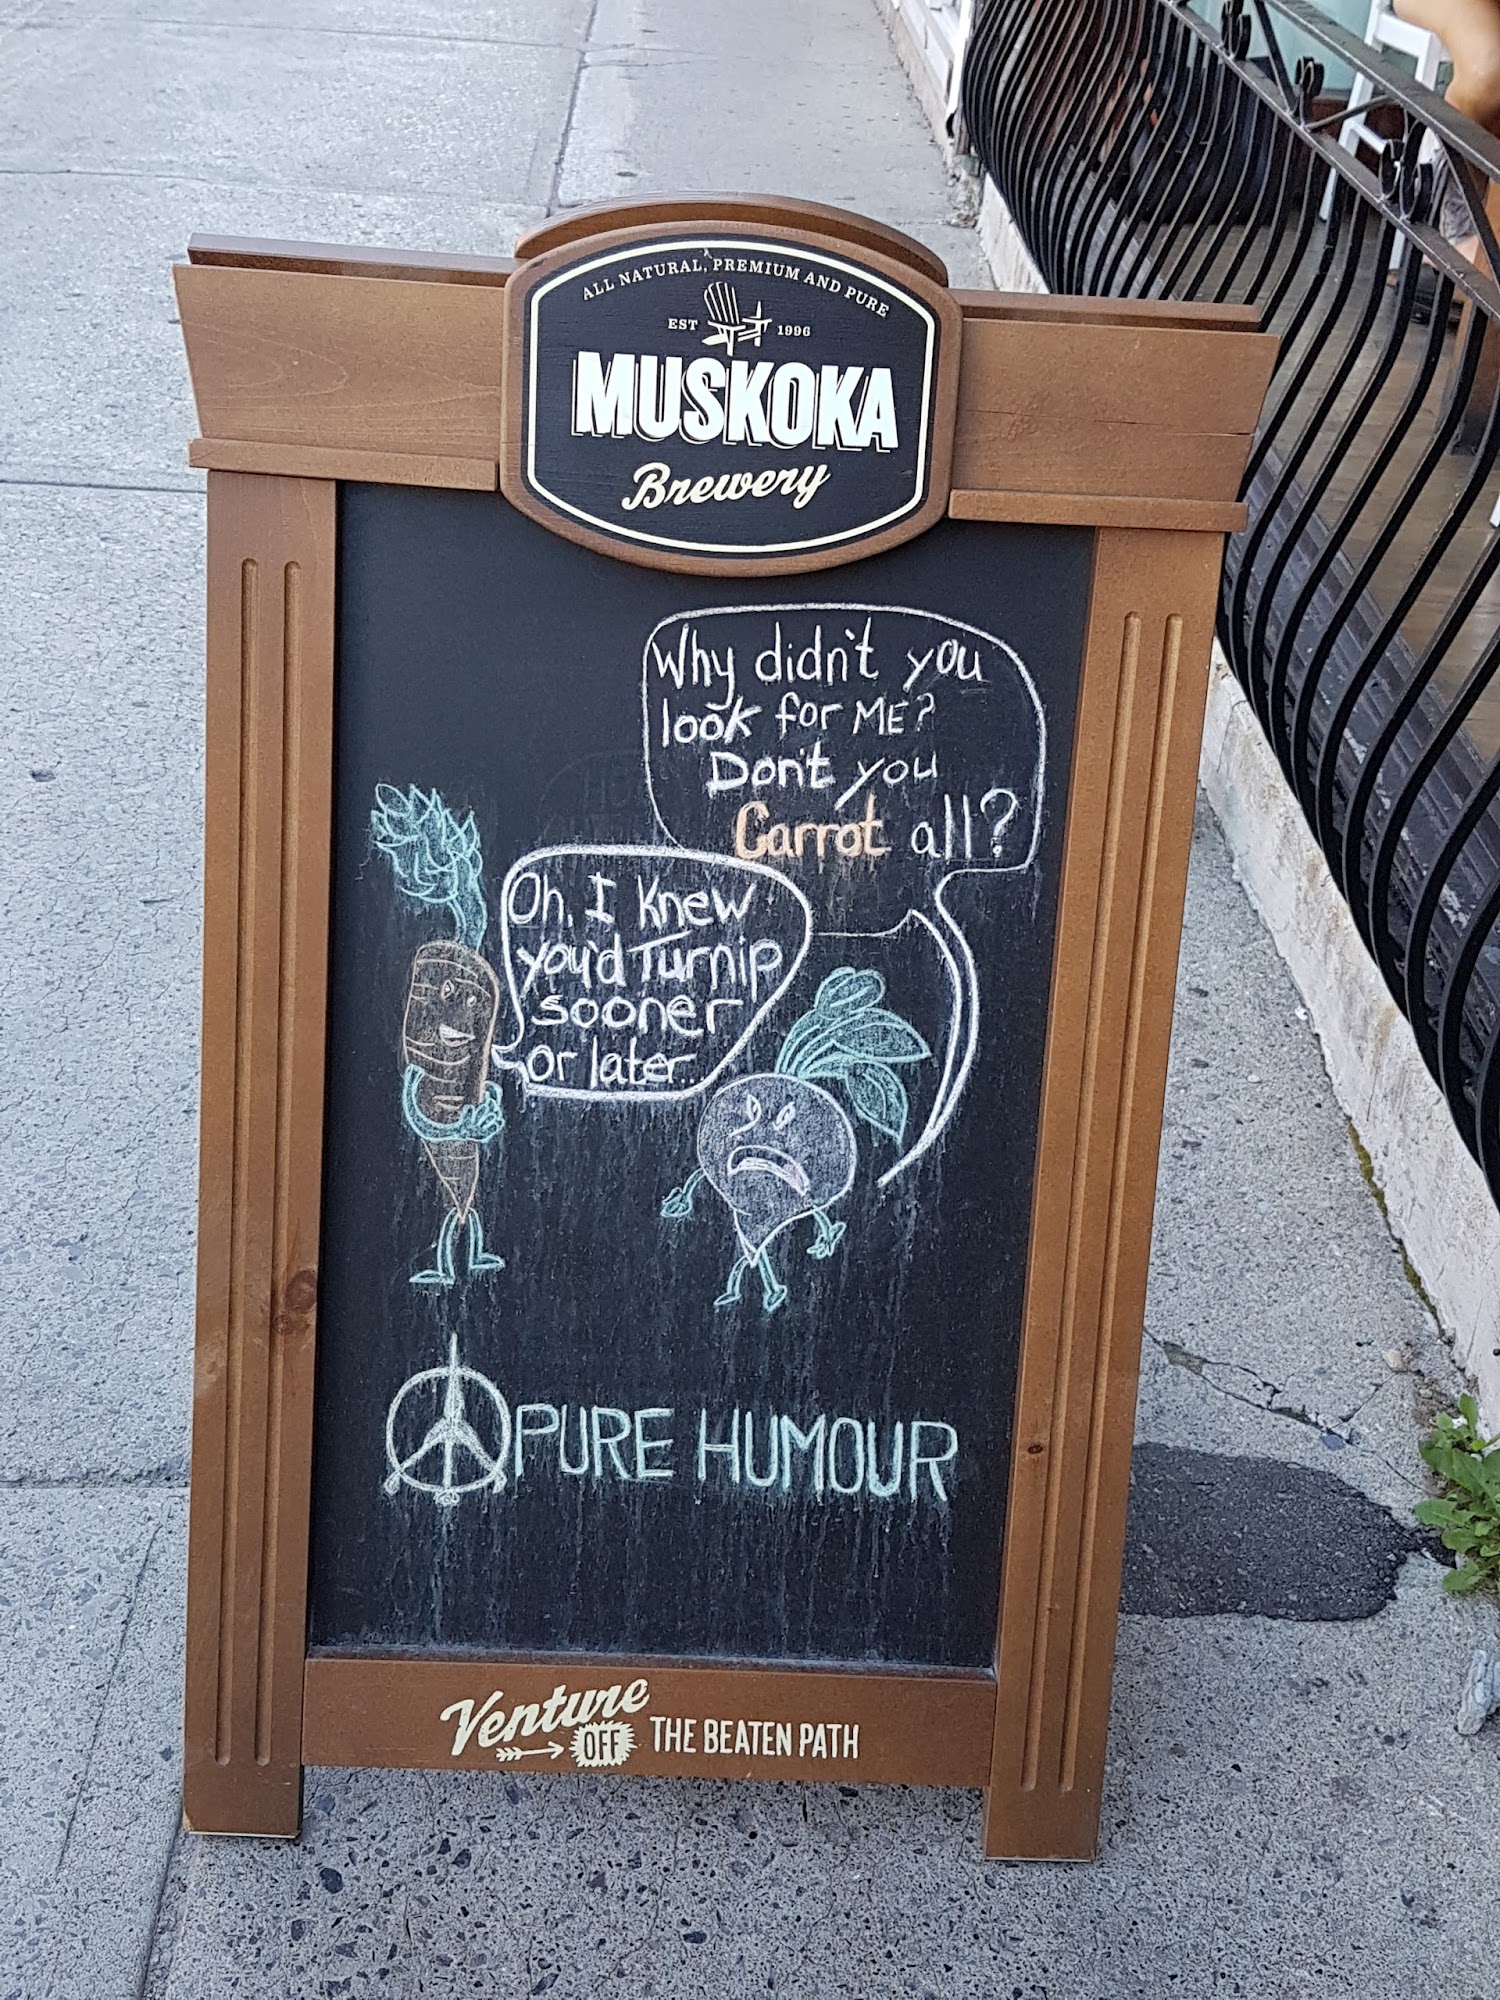 ALL NATURAL, PREMIUM AND PURE
EST 1996
MUSKOKA
Brewery
Why didn't you
look for ME?
Don't you
Carrot all?
Oh, I knew
you'd Turnip
sooner
or later...
PURE HUMOUR
Venture
OFF THE BEATEN PATH